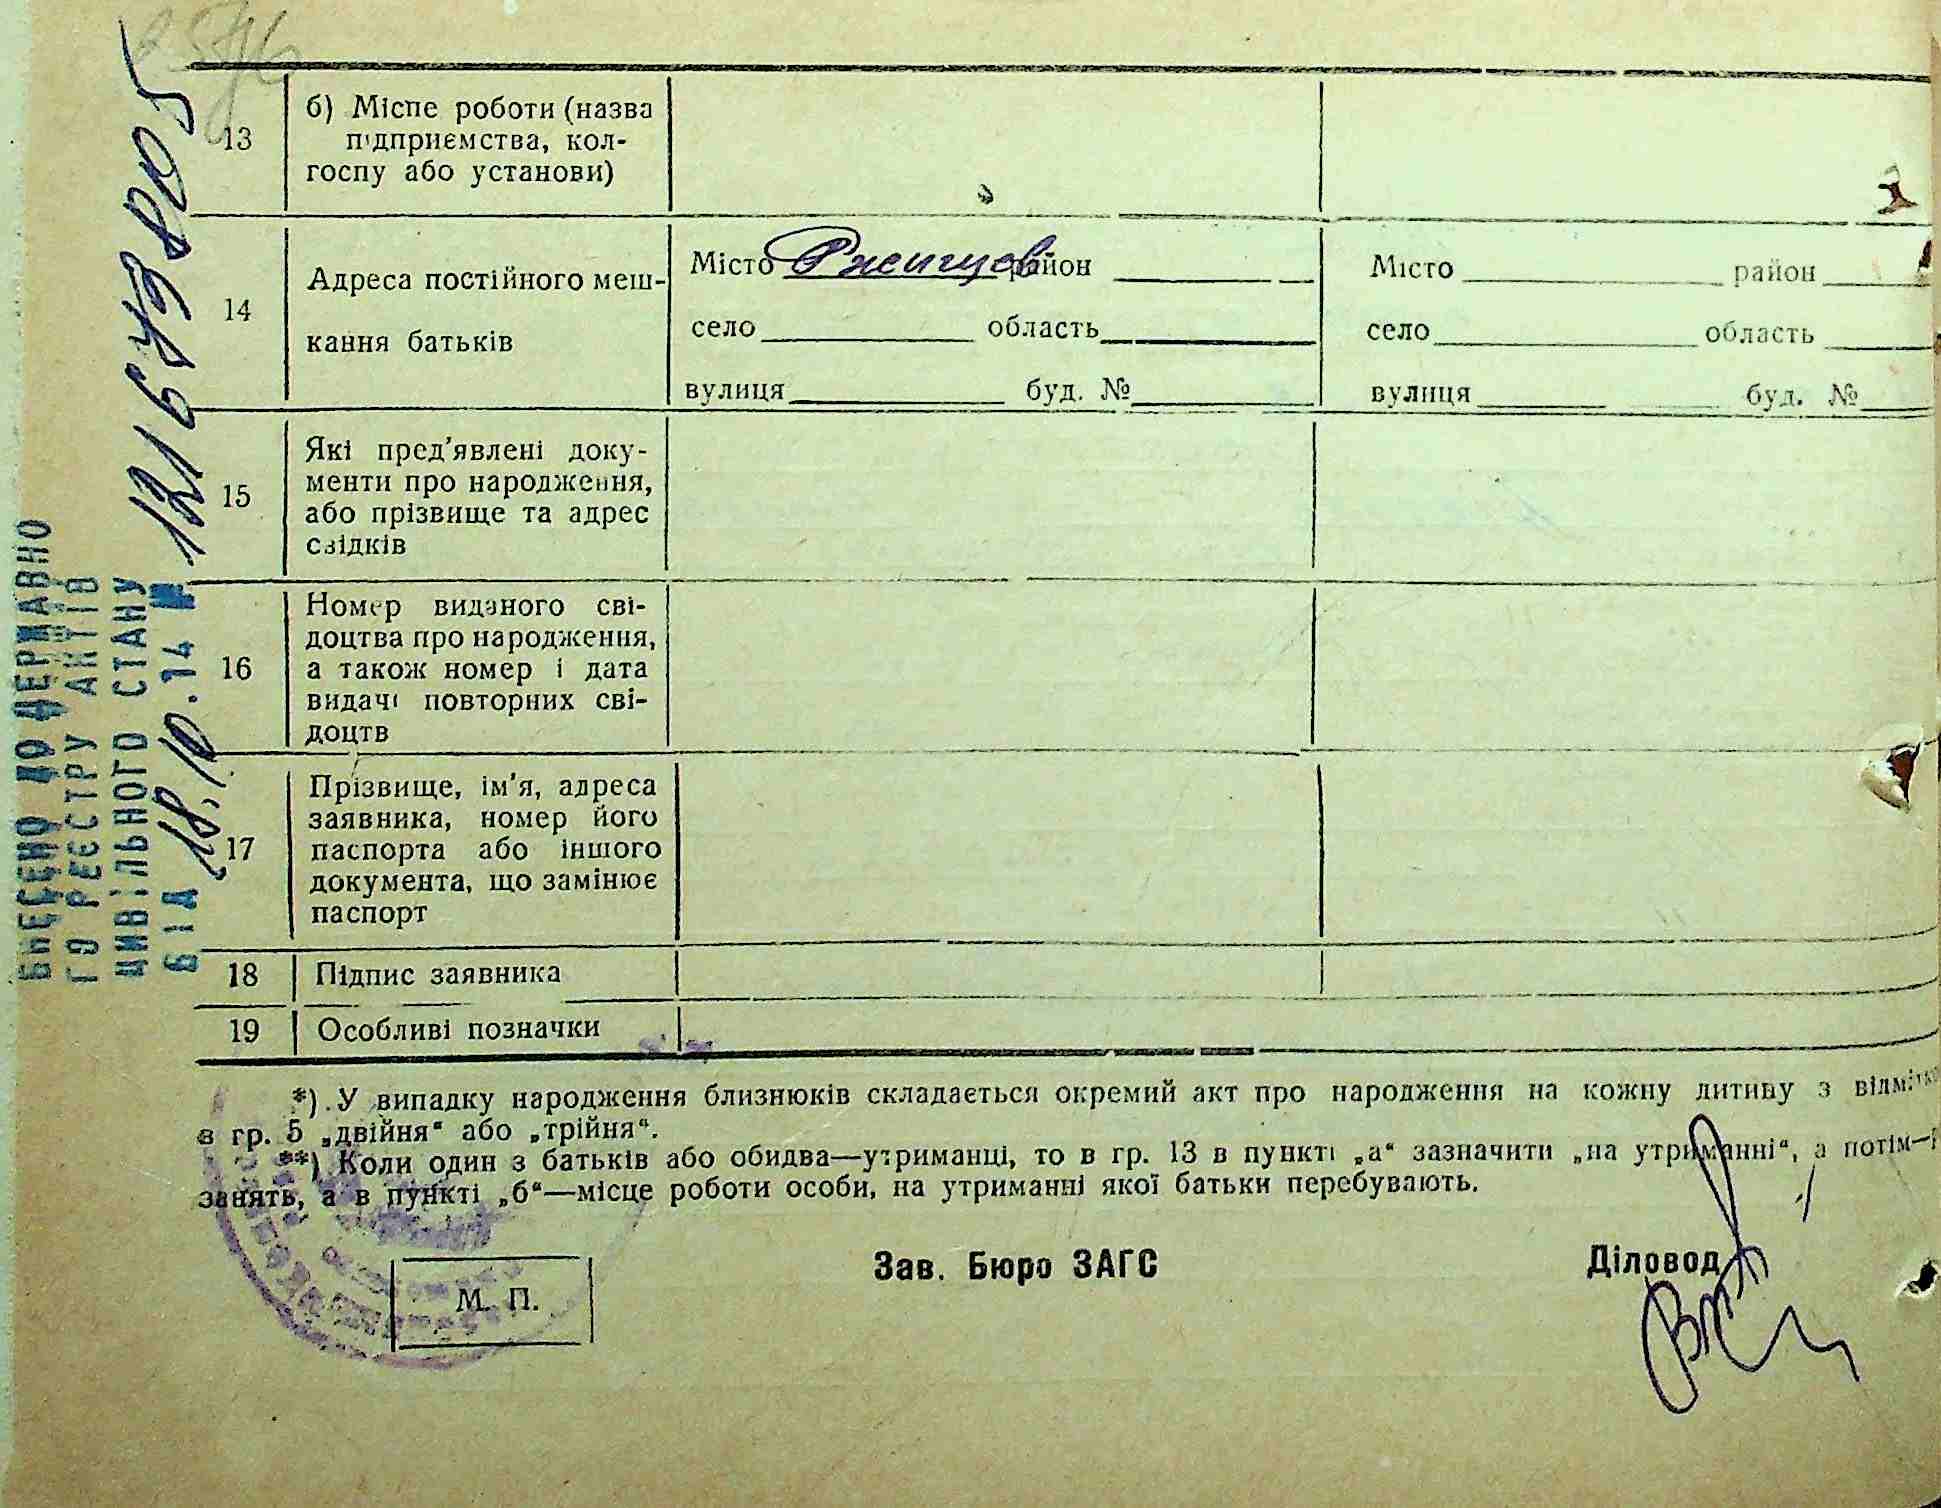 13
б) Місце роботи (назва
підприємства, кол-
госпу або установи)
14
Адреса постійного меш-
кання батьків
Місто Ржищев район
село область
вулиця буд. №
Місто район
село область
вулиця буд. №
15
Які пред'явлені доку-
менти про народження,
або прізвище та адрес
свідків
16
Номер виданого сві-
доцтва про народження,
а також номер і дата
видачі повторних сві-
доцтв
17
Прізвище, ім'я, адреса
заявника, номер його
паспорта або іншого
документа, що замінює
паспорт
18 Підпис заявника
19 Особливі позначки
*) У випадку народження близнюків складається окремий акт про народження на кожну дитину з
в гр. 5 „двійня" або „трійня".
**) Коли один з батьків або обидва—утриманці, то в гр. 13 в пункті „а" зазначити „на утриманні", а потім—
занять, а в пункті „б"—місце роботи особи, на утриманні якої батьки перебувають.
М. П.
Зав. Бюро ЗАГС
Діловод
ВНЕСЕНО ДО ДЕРЖАВНО
ГО РЕЄСТРУ АКТІВ
ЦИВІЛЬНОГО СТАНУ
ВІД 18.10.14 №